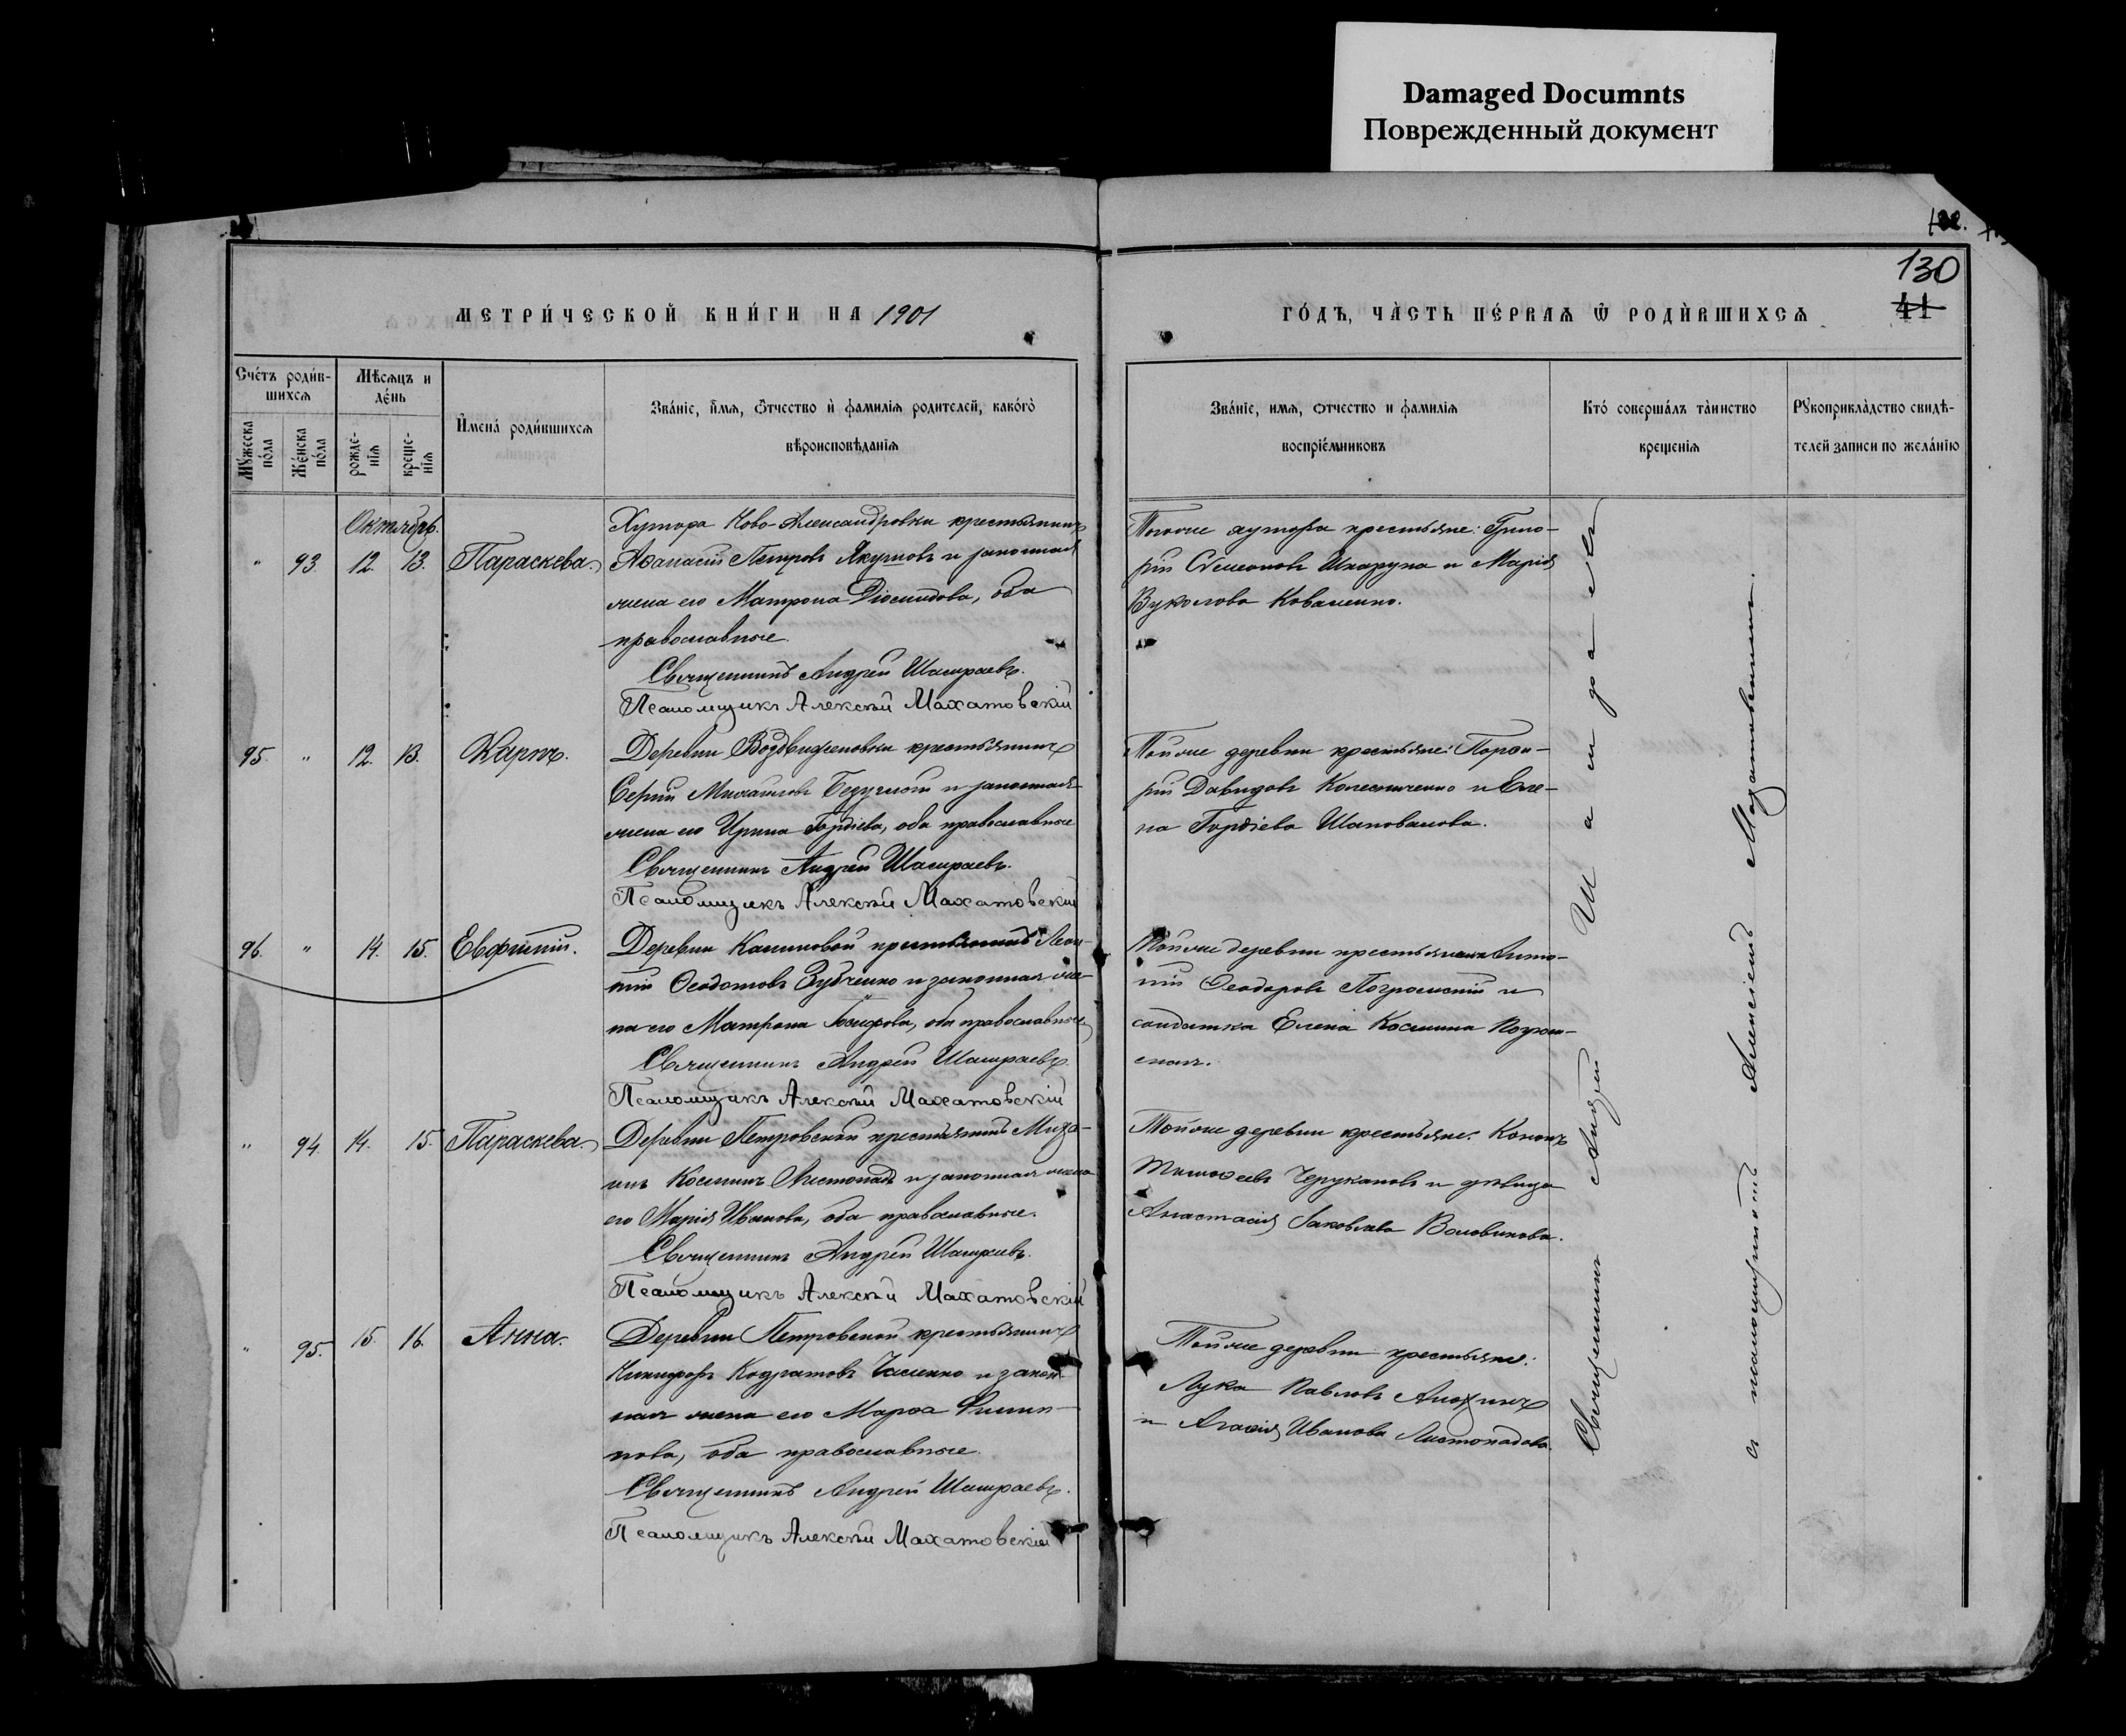 Damaged Documnts
Поврежденный документ
130
41
МЕТРИ́ЧЕСКОЙ КНИ́ГИ НА 1901
ГО́ДЪ, ЧА̀СТЬ ПЕ́РВАѦ Ѿ РОДИ́ВШИХСѦ
Сче́тъ роди́в-
шихсѧ
Мꙋ́жеска по́ла
Же́нска по́ла
Мѣ́сѧцъ и де́нь
рожде-
нія
креще-
нія
И҆мена̀ роди́вшихсѧ
Зва́ніе, и҆́мѧ, ѻ҆́тчество и҆ фамилія родителей, како́гѡ
вѣроисповѣданія
Зва́ніе, имѧ, отчество и фамилія
воспріе́мниковъ
Кто́ соверша́лъ та́инство
крещенія
Рꙋкоприкла̀дство свидѣ-
телей записи по жела́нію
Октябрь.
" 93. 12. 13. Параскева.
Хутора Ново-Александровки крестьянинъ
Аѳанасій Петровъ Якушовъ и законная
жена его Матрона Діомидова, оба
православные.
Священникъ Андрей Шамраевъ.
Псаломщикъ Алексѣй Махатовскій
Того же хутора крестьяне: Григо-
рій Сѵмеоновъ Шкарупа и Марія
Вуколова Коваленко.
95. " 12. 13. Карпъ.
Деревни Воздвиженовки крестьянинъ
Сергій Михаиловъ Безуглый и законная
жена его Ирина Гордіева, оба православные
Священникъ Андрей Шамраевъ.
Псаломщикъ Алексѣй Махатовскій
Той же деревни крестьяне: Порфи-
рій Давидовъ Колесниченко и Еле-
на Гордіева Шаповалова.
96. " 14. 15. Евфимій.
Деревни Калиновой крестьянинъ Леон-
тій Ѳеодотовъ Зубченко и законная же-
на его Матрона Іосифова, оба православные
Священникъ Андрей Шамраевъ.
Псаломщикъ Алексѣй Махатовскій
Той же деревни крестьянинъ Анто-
ній Ѳеодоровъ Погромскій и
солдатка Елена Космина
" 94. 14. 15. Параскева.
Деревни Петровской крестьянинъ
Косминъ Листопадъ и законная жена
его Марія Иванова, оба православные.
Священникъ Андрей Шамраевъ.
Псаломщикъ Алексѣй Махатовскій
Той же деревни крестьяне: Кононъ
Тимоѳеевъ Черукановъ и дѣвица
Анастасія Іаковлева Воловикова.
" 95. 15. 16. Анна.
Деревни Петровской крестьянинъ
Никифоръ Кодратовъ и закон-
ная жена его Марѳа Филип-
пова, оба православные.
Священникъ Андрей Шамраевъ.
Псаломщикъ Алексѣй Махатовскій
Той же деревни крестьяне:
Лука Павловъ Анохинъ
и Агафія Иванова Листопадова.
Священникъ Андрей Шамраевъ
съ псаломщикомъ Алексіемъ Махатовскимъ.